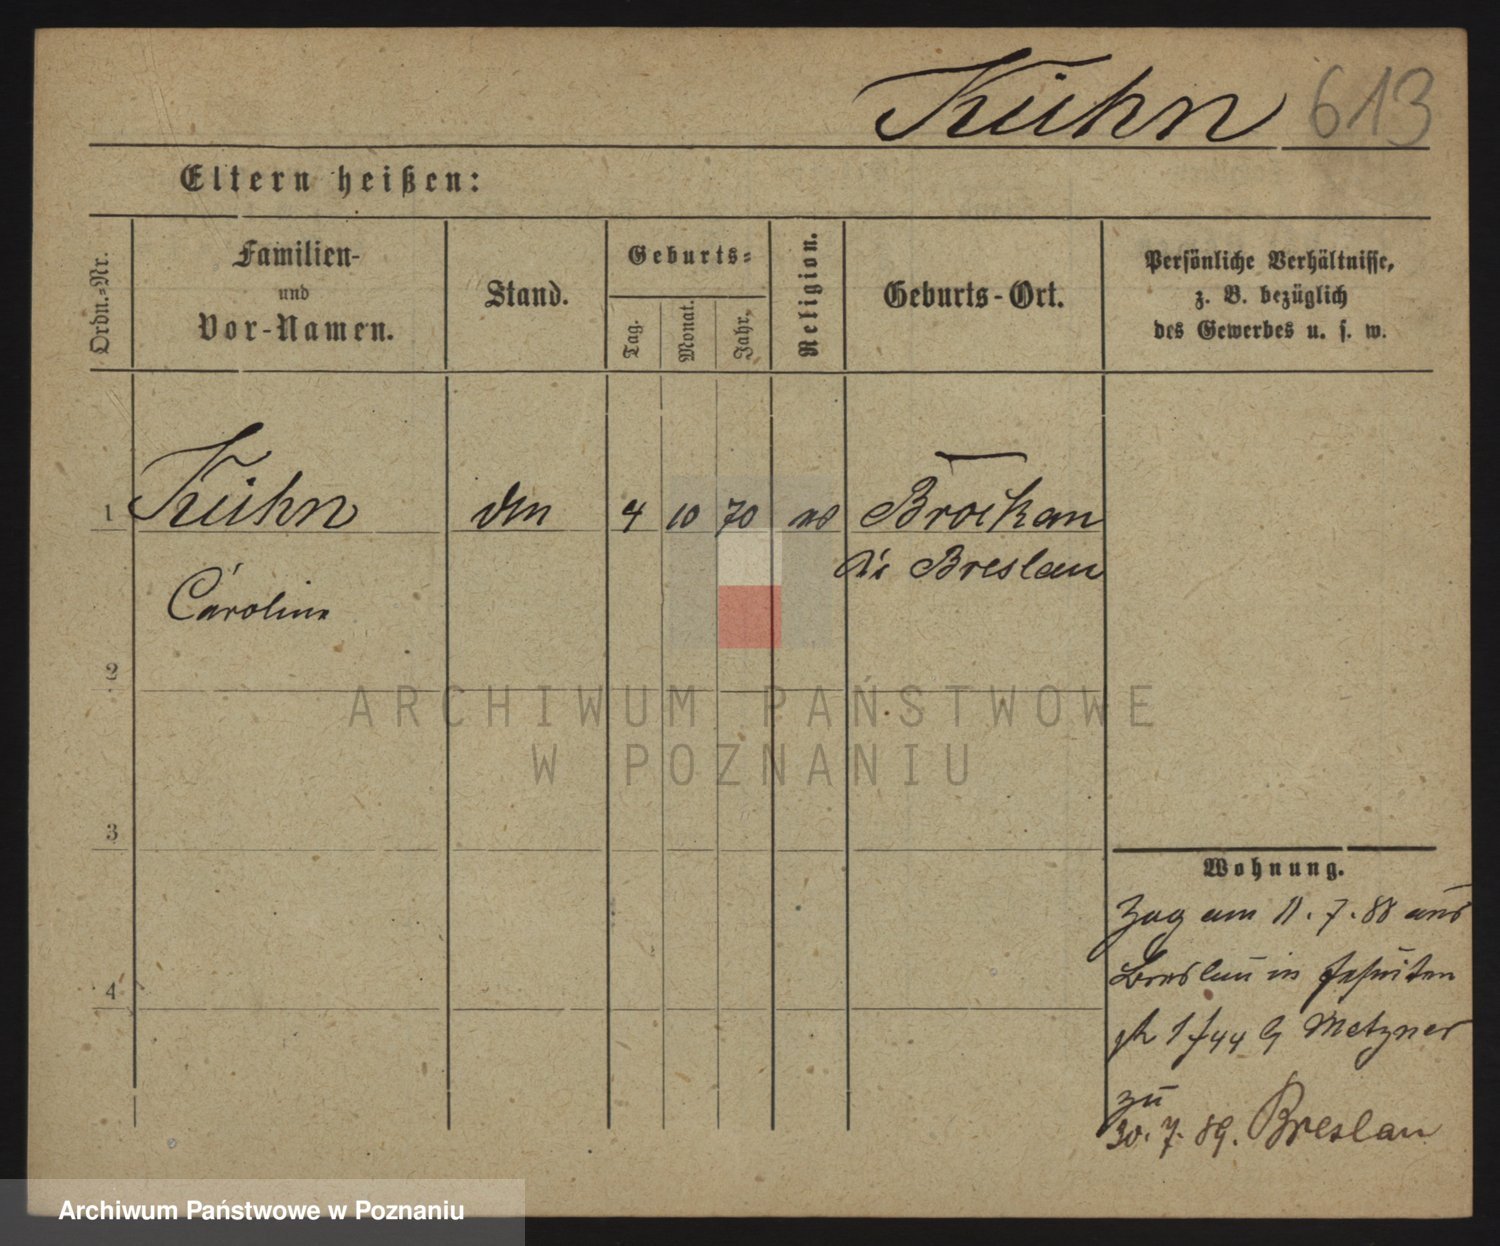 Kühn 613
Eltern heißen:
Ordn.-Nr.
Familien-
und
Vor-Namen.
Stand.
Geburts-
Tag.
Monat.
Jahr.
Religion.
Geburts-Ort.
Persönliche Verhältnisse,
z. B. bezüglich
des Gewerbes u. s. w.
1 Kühn 4 10 70 Brockau
Breslau
Caroline
2
3
4
ARCHIWUM PAŃSTWOWE
W POZNANIU
Wohnung.
Zog am 11.7.88 aus
Breslau in Jesuiten
Metzner
zu
30.7.89. Breslau
Archiwum Państwowe w Poznaniu